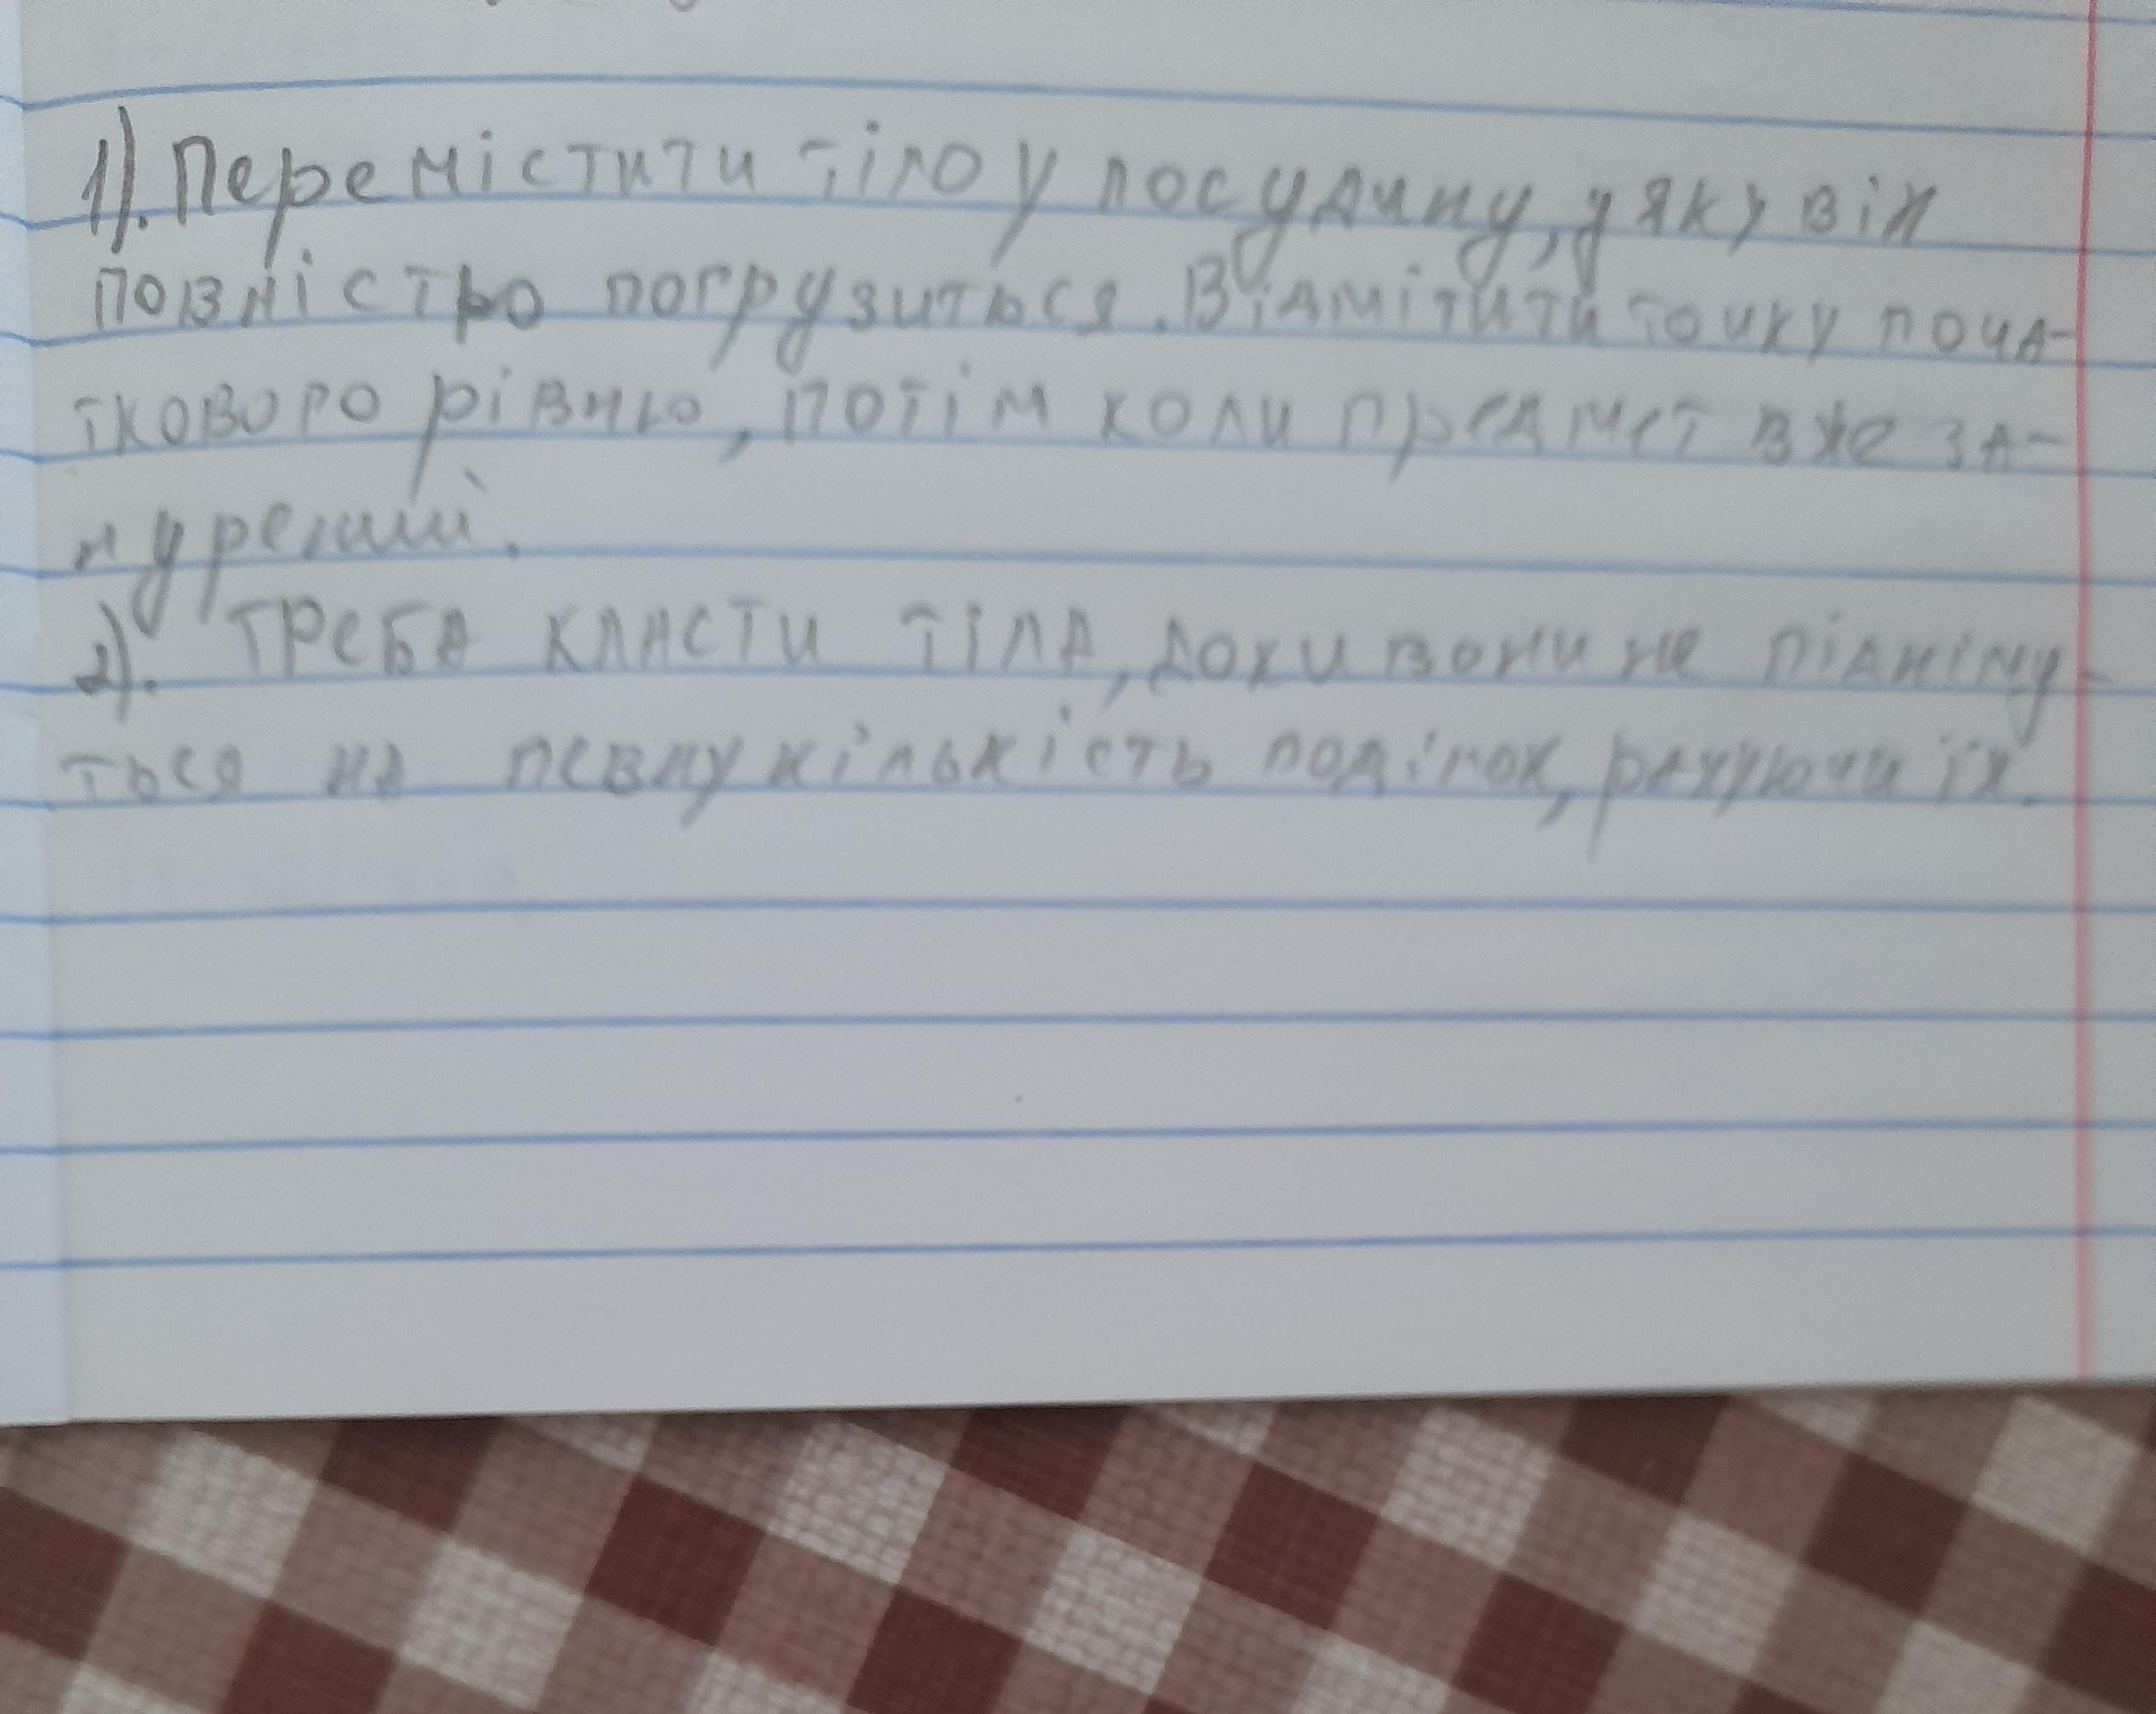 1). Перемістити тіло у посудину, у яку він
повністю погрузиться. Відмітити точку поча-
ткового рівню, потім коли предмет вже за-
нурений.
2). Треба класти тіла, доки вони не підніму-
ться на певну кількість поділок, рахуючи їх.